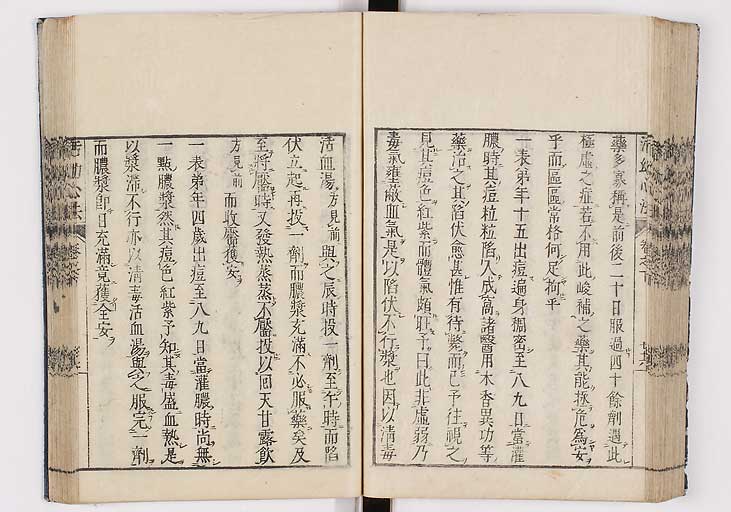 藥多寡稱是前後二十日服過四十餘劑遇此
極虛之症若不用此峻補之藥其能拯危爲安
乎而區區常格何足拘乎
一表弟年十五出痘遍身稠密至八九日當灌
膿時其痘粒粒陷入成窩諸醫用木香異功等
藥治之其陷伏愈甚惟有待斃而已予往視之
見其痘色紅紫而體氣頗旺予曰此非虛弱乃
毒氣壅蔽血氣是以陷伏不行漿也因以清毒
活血湯方見前與之辰時投一劑至午時而陷
伏立起再投一劑而膿漿充滿不必服藥矣及
至將靨時又發熱蒸蒸不靨投以回天甘露飲
方見前而收靨獲安
一表弟年四歲出痘至八九日當灌膿時尚無
一點膿漿然其痘色紅紫予知其毒盛血熱是
以漿滯不行亦以清毒活血湯與之服完一劑
而膿漿即日充滿竟獲全安